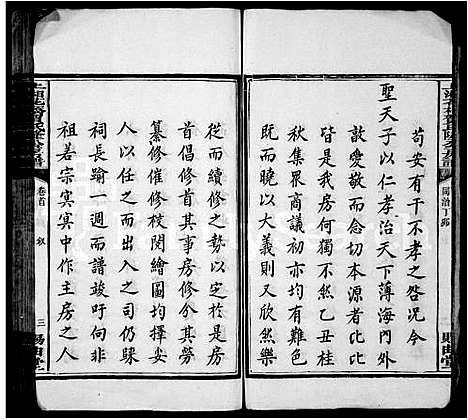 苟安有干不孝之咎况今
聖天子以仁孝治天下薄海門外
敦愛敬而念切本源者比比
然矣此房何獨不然乙丑桂
秋集界商議初亦均有難色
既而曉以大義則又欣然樂
從而續修之勢以定於是房
首倡修首其事房修分其勞
纂修催修校閱繪圖均擇妥
人以任之而出入之司仍騾
祠長踰一週而譜竣吁何由
祖若宗冥冥中作主房之人
卷首
叙
三